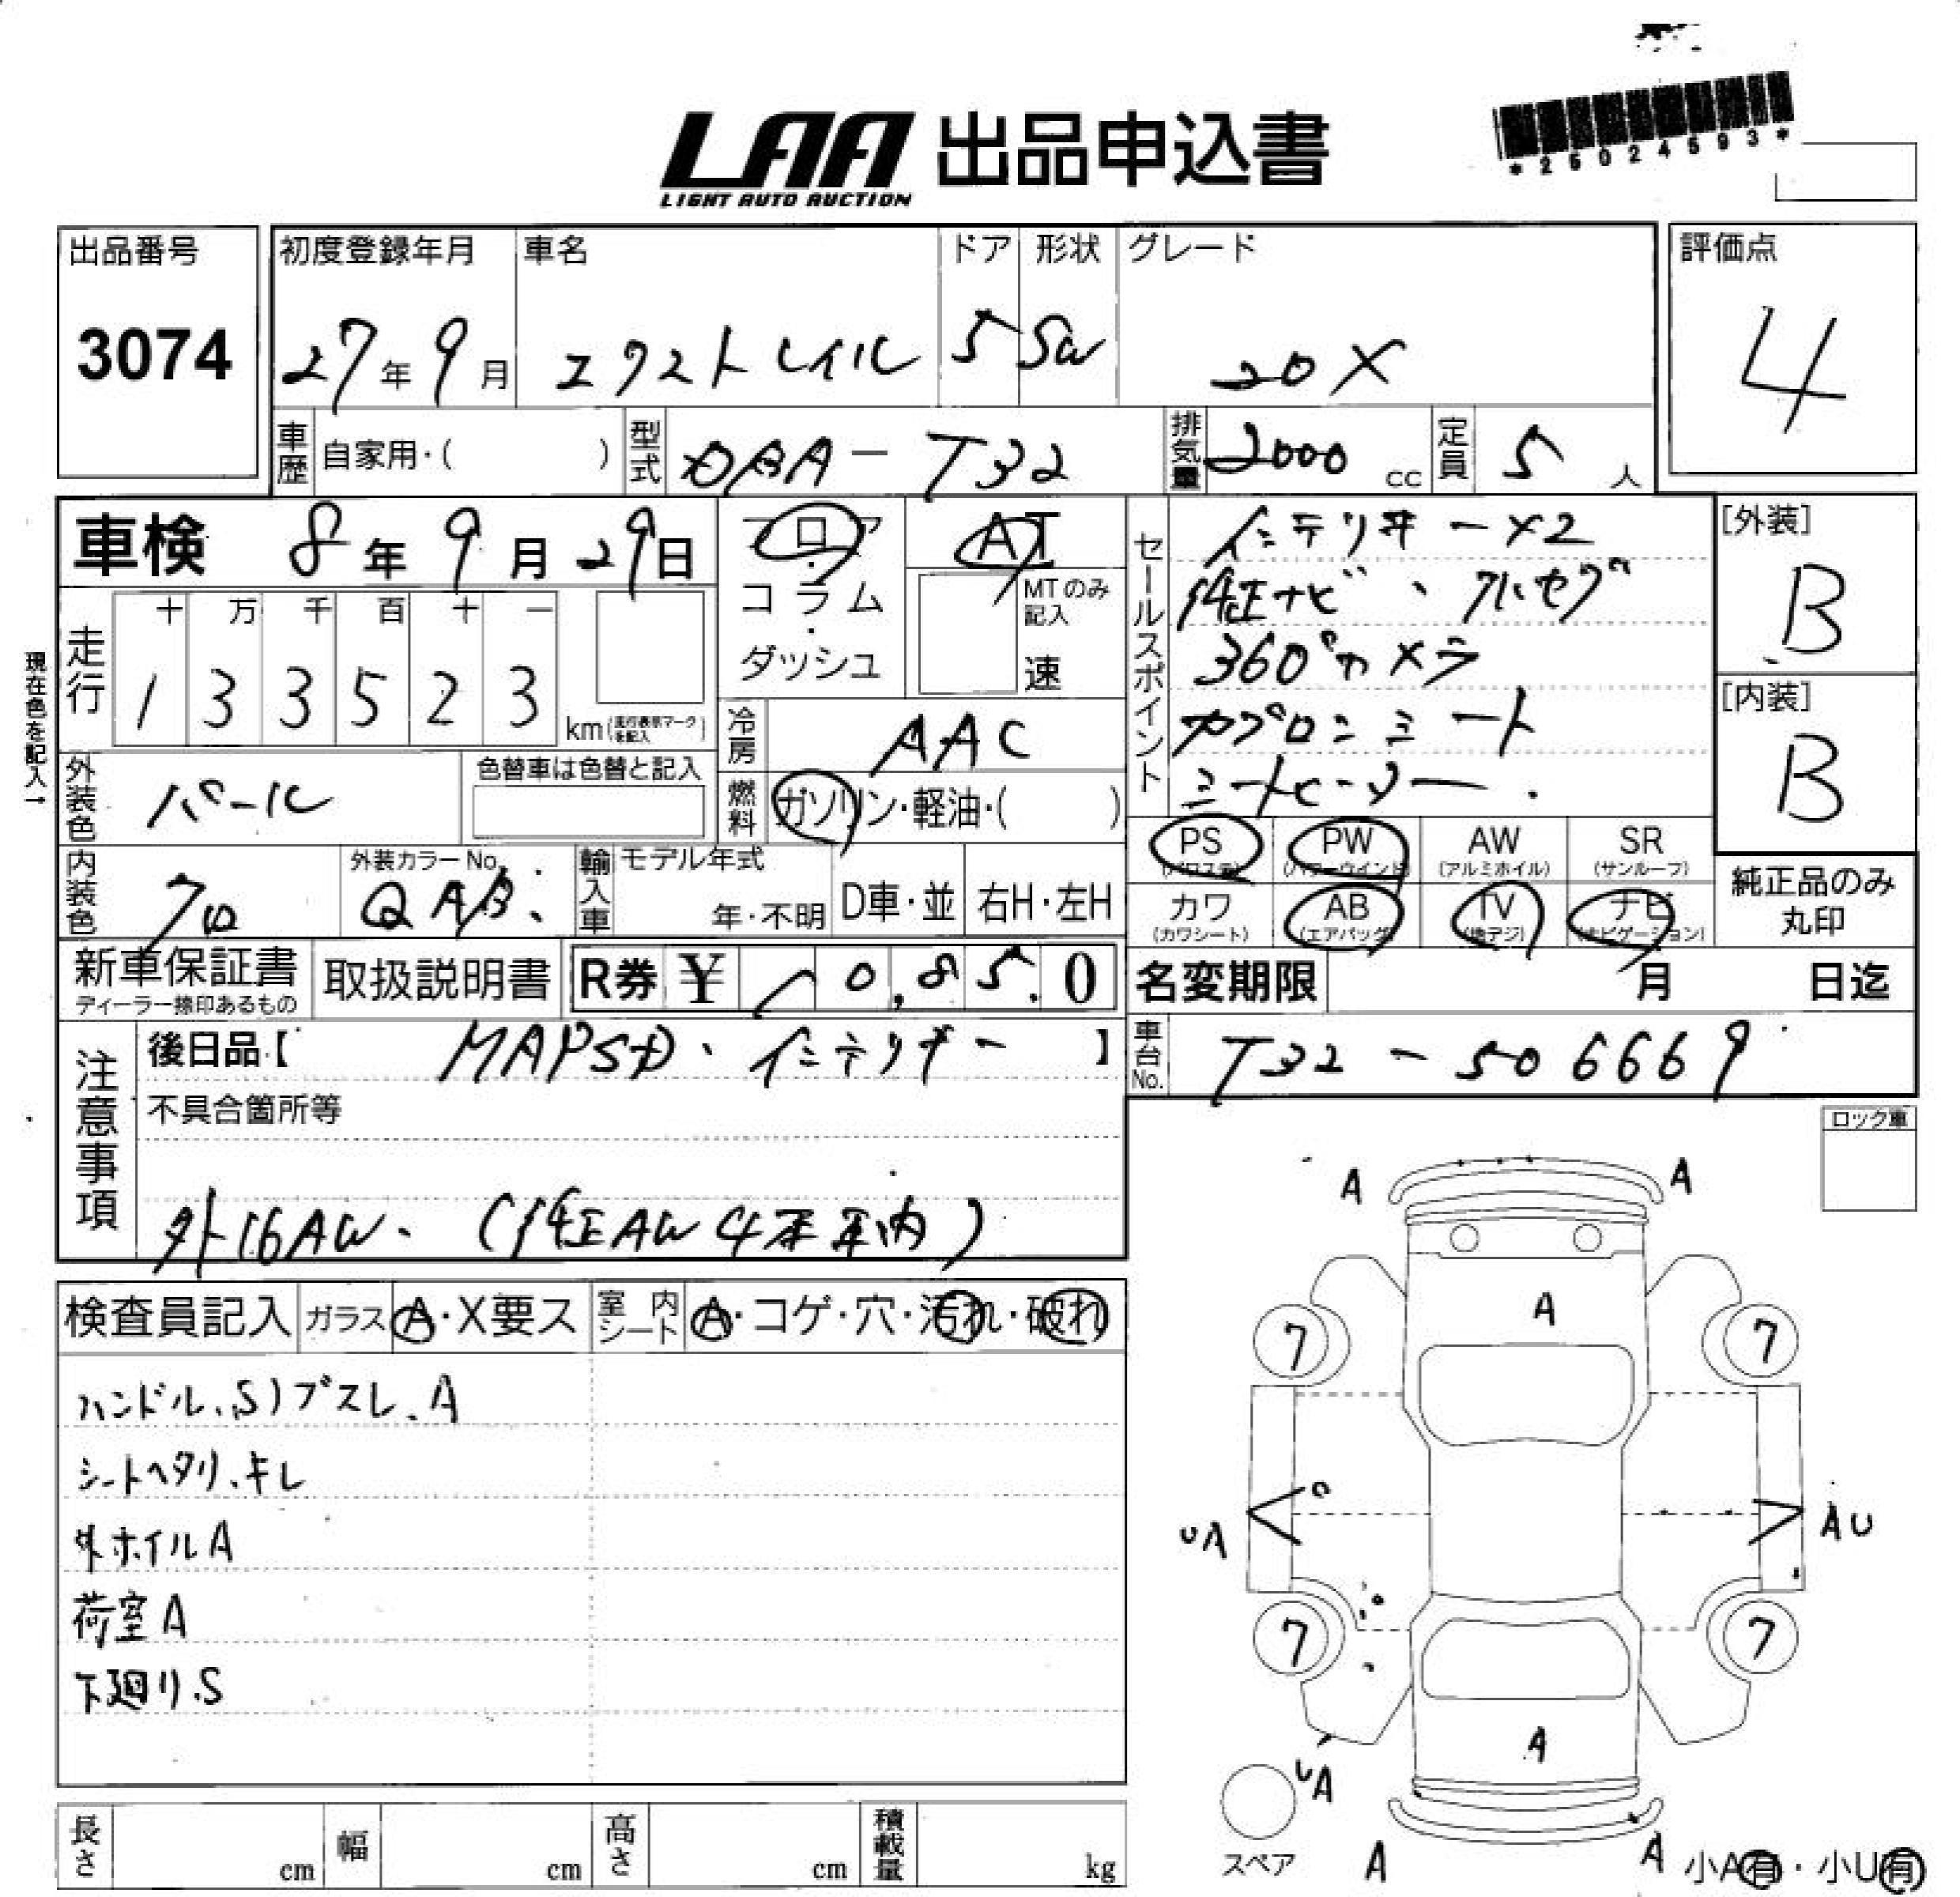 *26024593*
LAA 出品申込書
LIGHT AUTO AUCTION
出品番号 初度登録年月 車名 ドア 形状 グレード 評価点
3074 27年9月 エクストレイル 5 SW 20X 4
車歴 自家用・( ) 型式 DBA-T32 排気量 2000 cc 定員 5 人
車検 8年9月29日 フロア・コラム・ダッシュ AT MTのみ記入 速
セールスポイント
インテリキーX2
純正ナビ、フルセグ
360°カメラ
カプロンシート
シートヒーター.
[外装] B
[内装] B
現在色を記入→
走行 十 万 千 百 十 一
1 3 3 5 2 3 km(走行表示マークを記入)
冷房 AAC
外装色 パール 色替車は色替と記入 燃料 ガソリン・軽油・( )
PS (パワステ) PW (パワーウインド) AW (アルミホイル) SR (サンルーフ)
カワ (カワシート) AB (エアバッグ) TV (地デジ) ナビ (ナビゲーション)
純正品のみ丸印
内装色 クロ 外装カラーNo. QAB 輸入車 モデル年式 年・不明 D車・並 右H・左H
新車保証書 ディーラー捺印あるもの 取扱説明書 R券 ¥ 10,850 名変期限 月 日迄
車台No. T32-506669
注意事項 後日品【 MAPSD、インテリキー 】
不具合箇所等
外16AW、(純正AW4本車内)
ロック車
検査員記入 ガラス A・X要ス 室内シート A・コゲ・穴・汚れ・破れ
ハンドル、S)ブスレ、A
シートヘタリ、キレ
外ホイルA
荷室A
下廻り.S
A A
A
7 7
UA AU
7 7
A
UA
スペア A A 小A有・小U有
長さ cm 幅 cm 高さ cm 積載量 kg